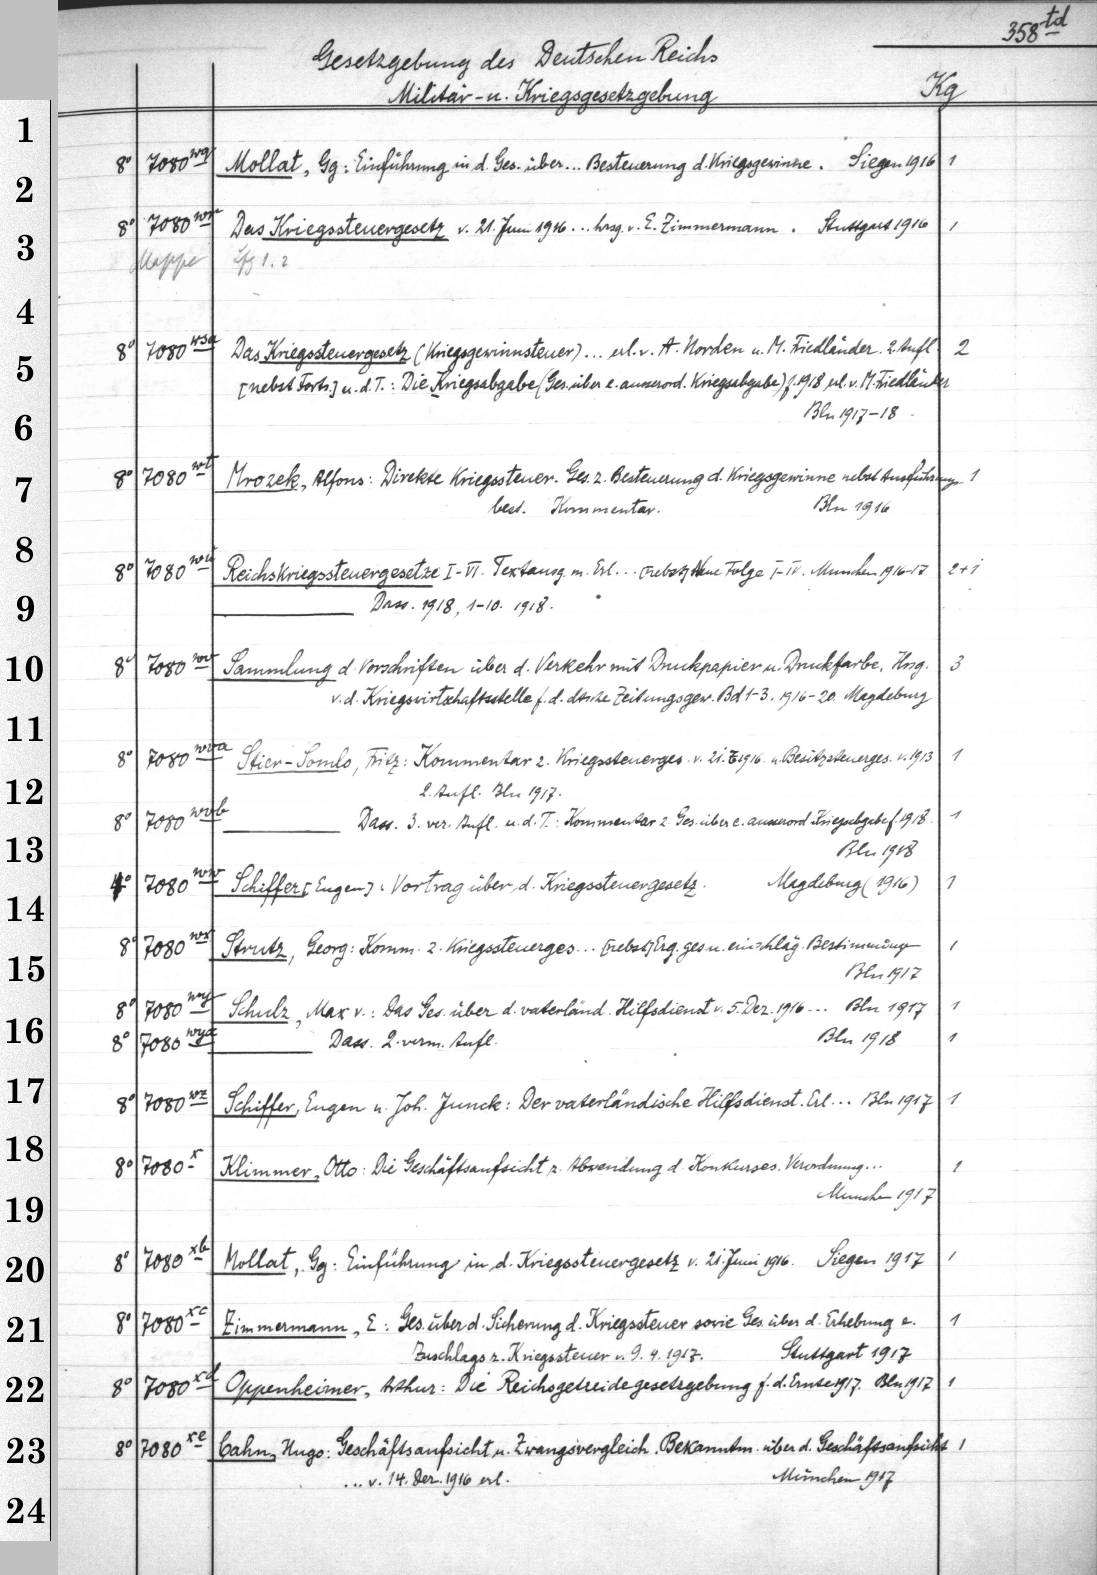 358td
Gesetzgebung des Deutschen Reichs
Militär- u. Kriegsgesetzgebung Kg
1
8° 7080 wq Mollat, Gg: Einführung in d. Ges. über... Besteuerung d. Kriegsgewinne. Siegen 1916 1
2
8° 7080 wr Das Kriegssteuergesetz v. 21. Juni 1916... hrsg. v. E. Zimmermann. Stuttgart 1916 1
3
Mappe Lfg 1. 2
4
8° 7080 wsa Das Kriegssteuergesetz (Kriegsgewinnsteuer)... erl. v. A. Norden u. M. Friedländer. 2. Aufl. 2
5
[nebst Forts.] u. d. T.: Die Kriegsabgabe (Ges. über e. ausserord. Kriegsabgabe) f. 1918 erl. v. M. Friedländer
Bln 1917-18.
6
8° 7080 wt Mrozek, Alfons: Direkte Kriegssteuer. Ges. z. Besteuerung d. Kriegsgewinne nebst Ausführungs- 1
7
best. Kommentar. Bln 1916
8
8° 7080 wu Reichskriegssteuergesetze I-VI. Textausg. m. Erl... [nebst] Neue Folge I-IV. München 1916-17 2+1
9
Dass. 1918, 1-10. 1918.
10
8° 7080 wv Sammlung d. Vorschriften über d. Verkehr mit Druckpapier u. Druckfarbe. Hrsg. 3
v. d. Kriegswirtschaftsstelle f. d. dtsche Zeitungsgew. Bd 1-3. 1916-20. Magdeburg
11
8° 7080 wva Stier-Somlo, Fritz: Kommentar z. Kriegssteuerges. v. 21.6.1916. u. Besitzsteuerges. v. 1913 1
12
2. Aufl. Bln 1917.
8° 7080 wvb Dass. 3. ver. Aufl. u. d. T.: Kommentar z. Ges. über e. ausserord. Kriegsabgabe f. 1918. 1
13
Bln 1918
4° 7080 ww Schiffer [Eugen]: Vortrag über d. Kriegssteuergesetz. Magdeburg (1916) 1
14
8° 7080 wx Strutz, Georg: Komm. z. Kriegssteuerges... [nebst] Erg. ges. u. einschläg. Bestimmungn 1
15
Bln 1917
8° 7080 wy Schulz, Max v.: Das Ges. über d. vaterländ. Hilfsdienst v. 5. Dez. 1916... Bln 1917 1
16
8° 7080 wya Dass. 2. verm. Aufl. Bln 1918 1
17
8° 7080 wz Schiffer, Eugen u. Joh. Junck: Der vaterländische Hilfsdienst. Erl... Bln 1917 1
18
8° 7080 x Klimmer, Otto: Die Geschäftsaufsicht z. Abwendung d. Konkurses. Verordnung... 1
19
München 1917
20
8° 7080 xb Mollat, Gg: Einführung in d. Kriegssteuergesetz v. 21. Juni 1916. Siegen 1917 1
21
8° 7080 xc Zimmermann, E: Ges. über d. Sicherung d. Kriegssteuer sowie Ges. über d. Erhebung e. 1
Zuschlags z. Kriegssteuer v. 9. 4. 1917. Stuttgart 1917
22
8° 7080 xd Oppenheimer, Arthur: Die Reichsgetreidegesetzgebung f. d. Ernte 1917. Bln 1917 1
23
8° 7080 xe Cahn, Hugo: Geschäftsaufsicht u. Zwangsvergleich. Bekanntm. über d. Geschäftsaufsicht 1
... v. 14. Dez. 1916 erl. München 1917
24